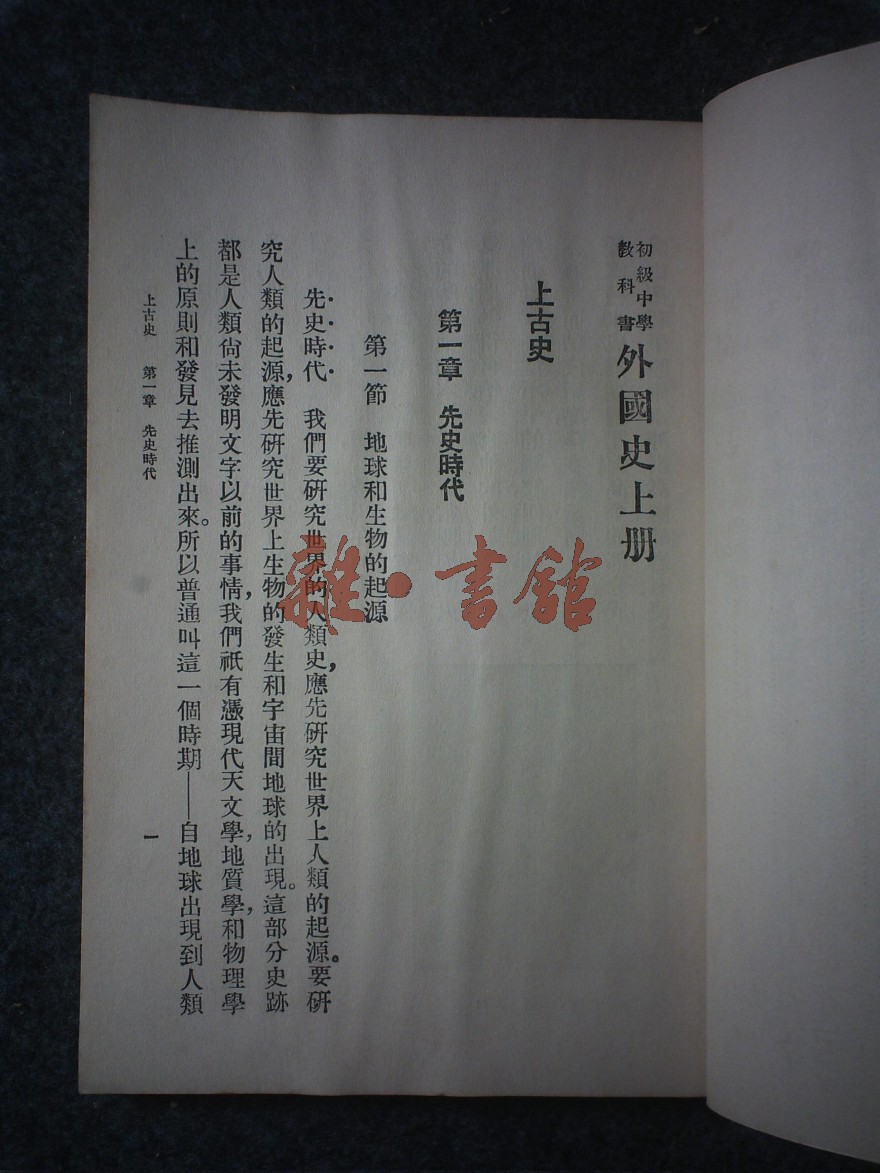 初級中學
教科書
外國史上册
上古史
第一章　先史時代
第一節　地球和生物的起源
先史時代　我們要研究世界的人類史，應先研究世界上人類的起源。要研
究人類的起源，應先研究世界上生物的發生和宇宙間地球的出現。這部分史跡
都是人類尙未發明文字以前的事情，我們祇有憑現代天文學，地質學，和物理學
上的原則和發見去推測出來。所以普通叫這一個時期——自地球出現到人類
上古史　第一章　先史時代
一
雜·書館